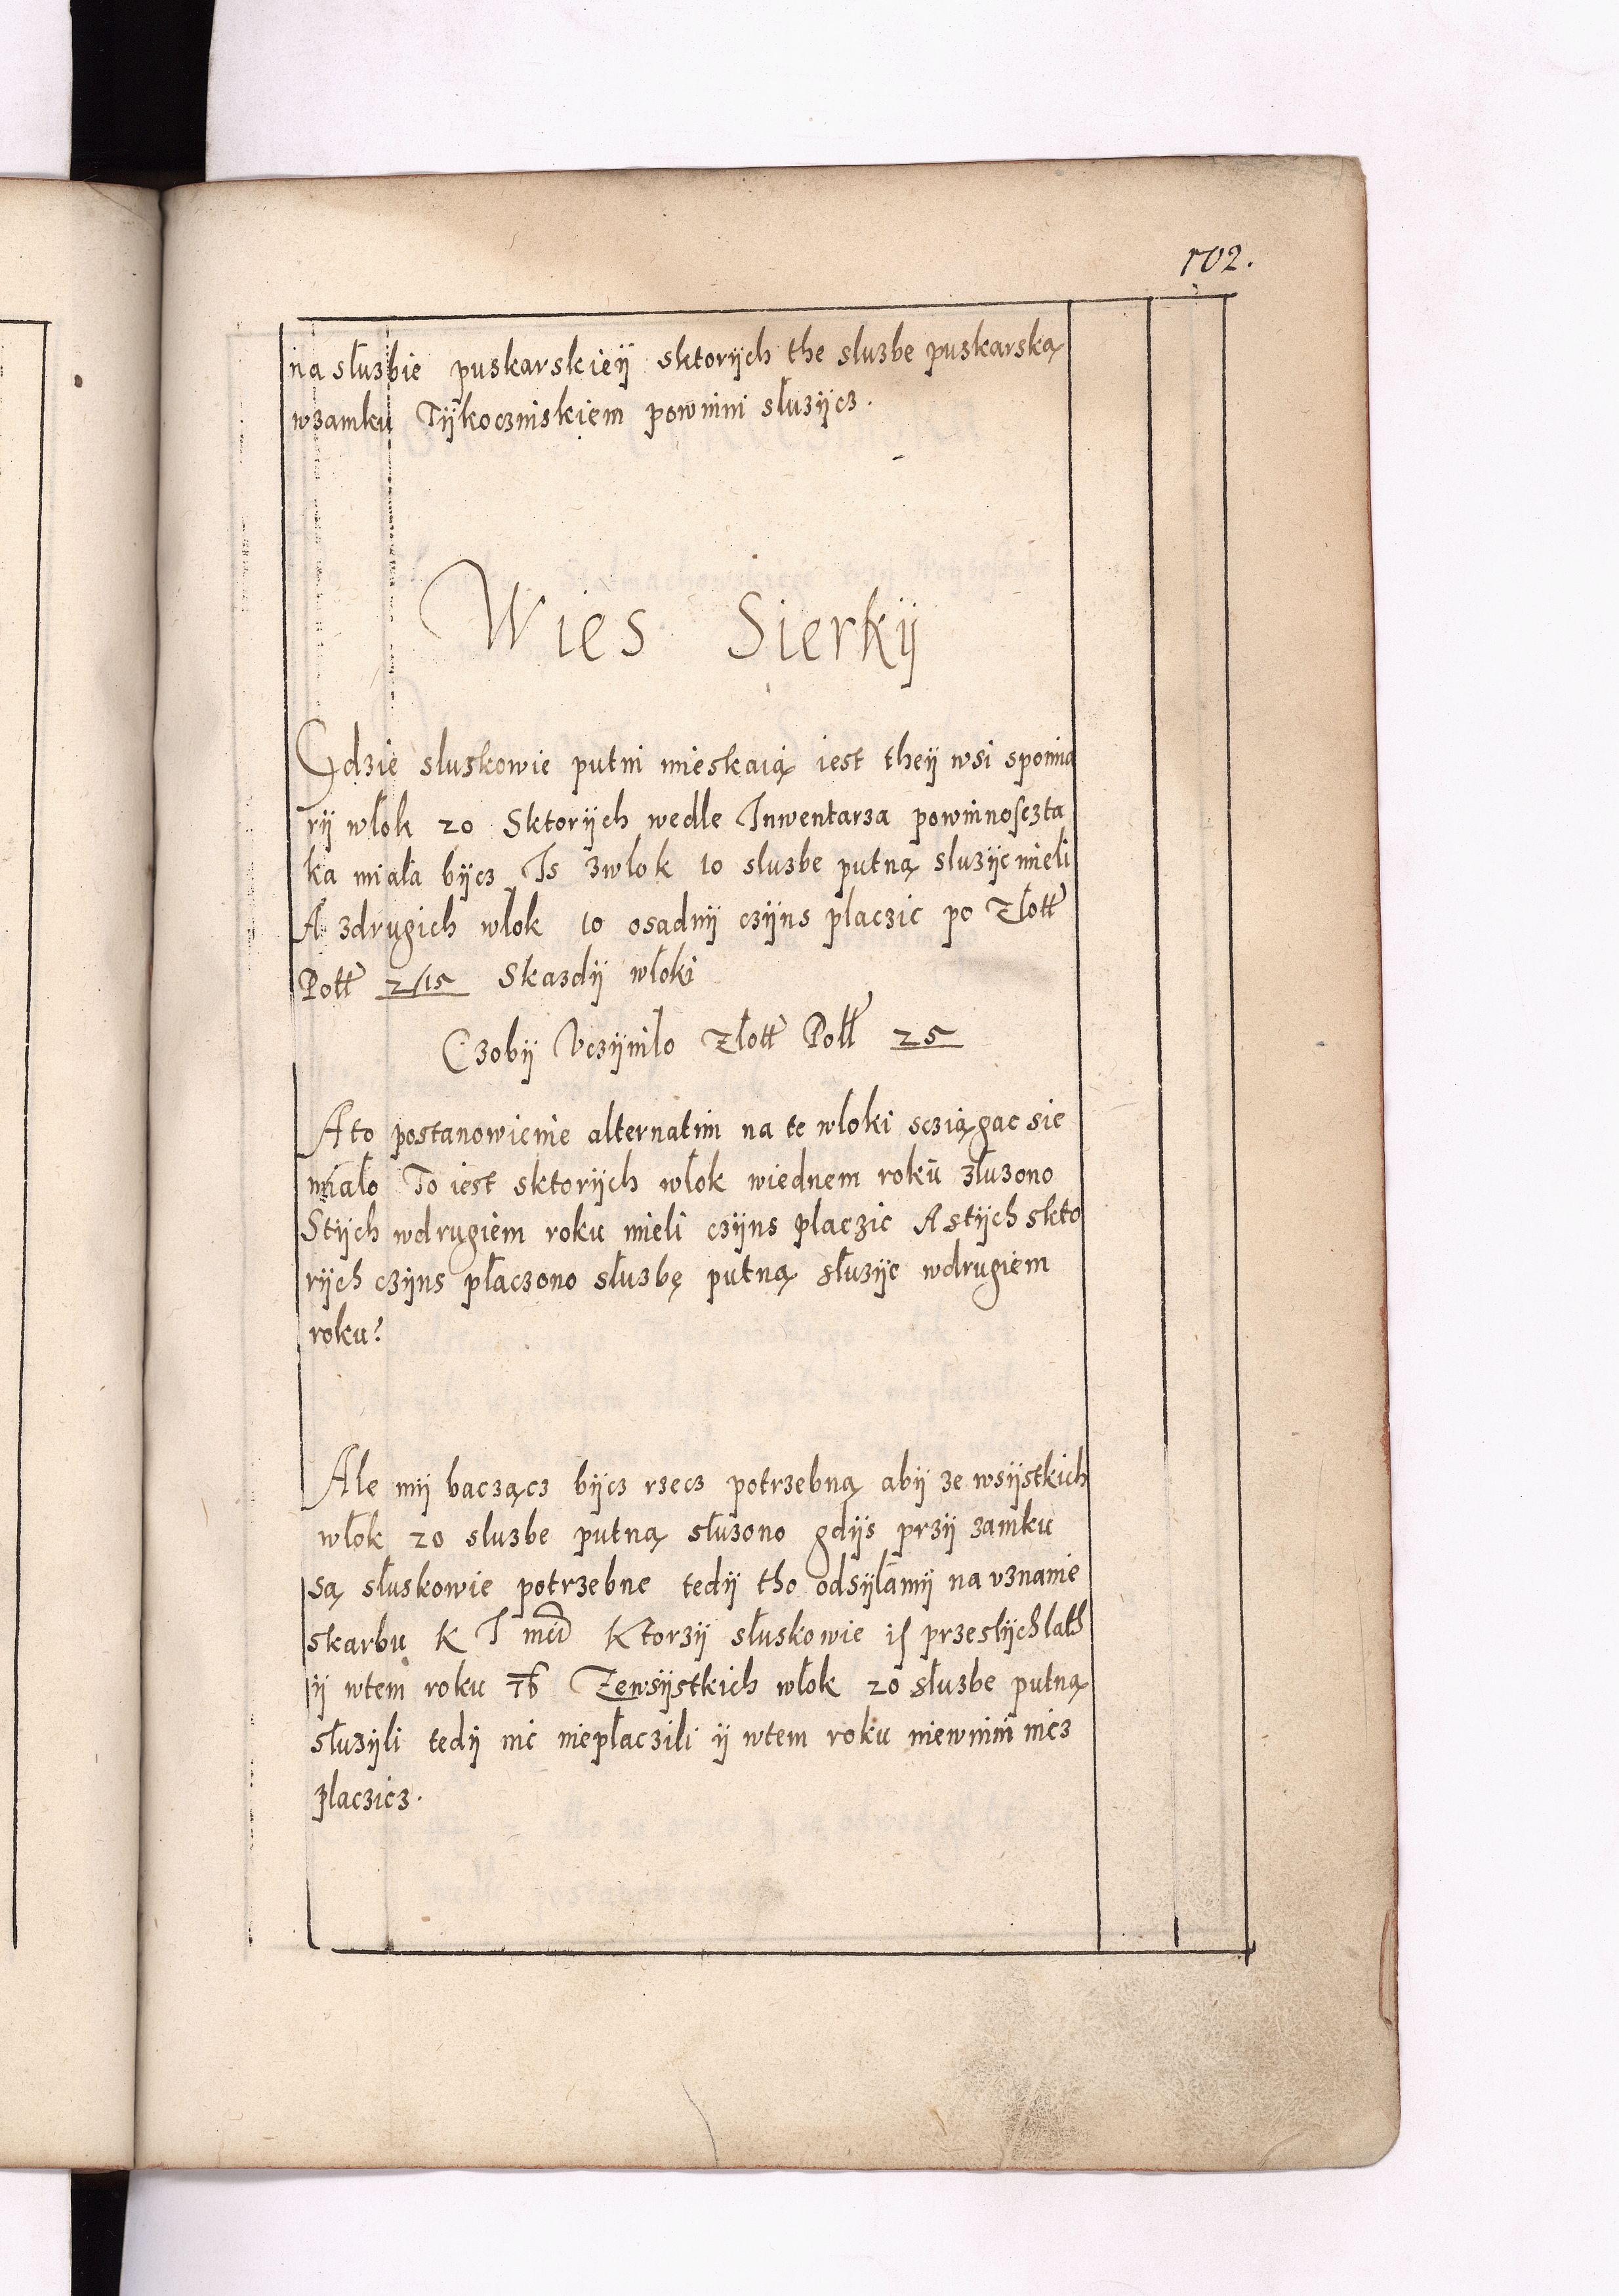 102.
na słuzbie puskarskieÿ sktorÿch the sluzbe puskarską
wzamku Tÿkoczniskiem powinni słuzÿcz.
Wies Sierkÿ
Gdzie sluskowie putni mieskaią iest theÿ wsi spomia
rÿ włok 20 Sktorÿch wedle Inwentarza powinnosczta
ka miała bÿcz Is zwlok 10 sluzbe putną sluzÿc mieli
A zdrugich włok 10 osadnÿ czÿns placzic po Złott
Poll 2/15 Skazdÿ włoki
Czobÿ Vczÿnilo Złott Poll 25
A to postanowienie alternatim na te wloki scziągac sie
miało To iest sktorÿch włok wiednem rokū złuzono
Stÿch wdrugiem roku mieli czÿns placzic A stÿch skto
rÿch czÿns płaczono słuzbę putną słuzÿc wdrugiem
roku?
Ale mÿ baczącz bÿcz rzecz potrzebną abÿ ze wsÿstkich
włok 20 sluzbe putną słuzono gdÿs przÿ zamku
są słuskowie potrzebne tedÿ tho odsÿłamÿ na vznanie
skarbu K I mci Ktorzÿ słuskowie iſ przeslÿch lath
ÿ wtem roku 76 Zewsÿstkich włok 20 słuzbe putną
słuzÿli tedÿ nic niepłaczili ÿ wtem roku niewinni nicz
placzicz.